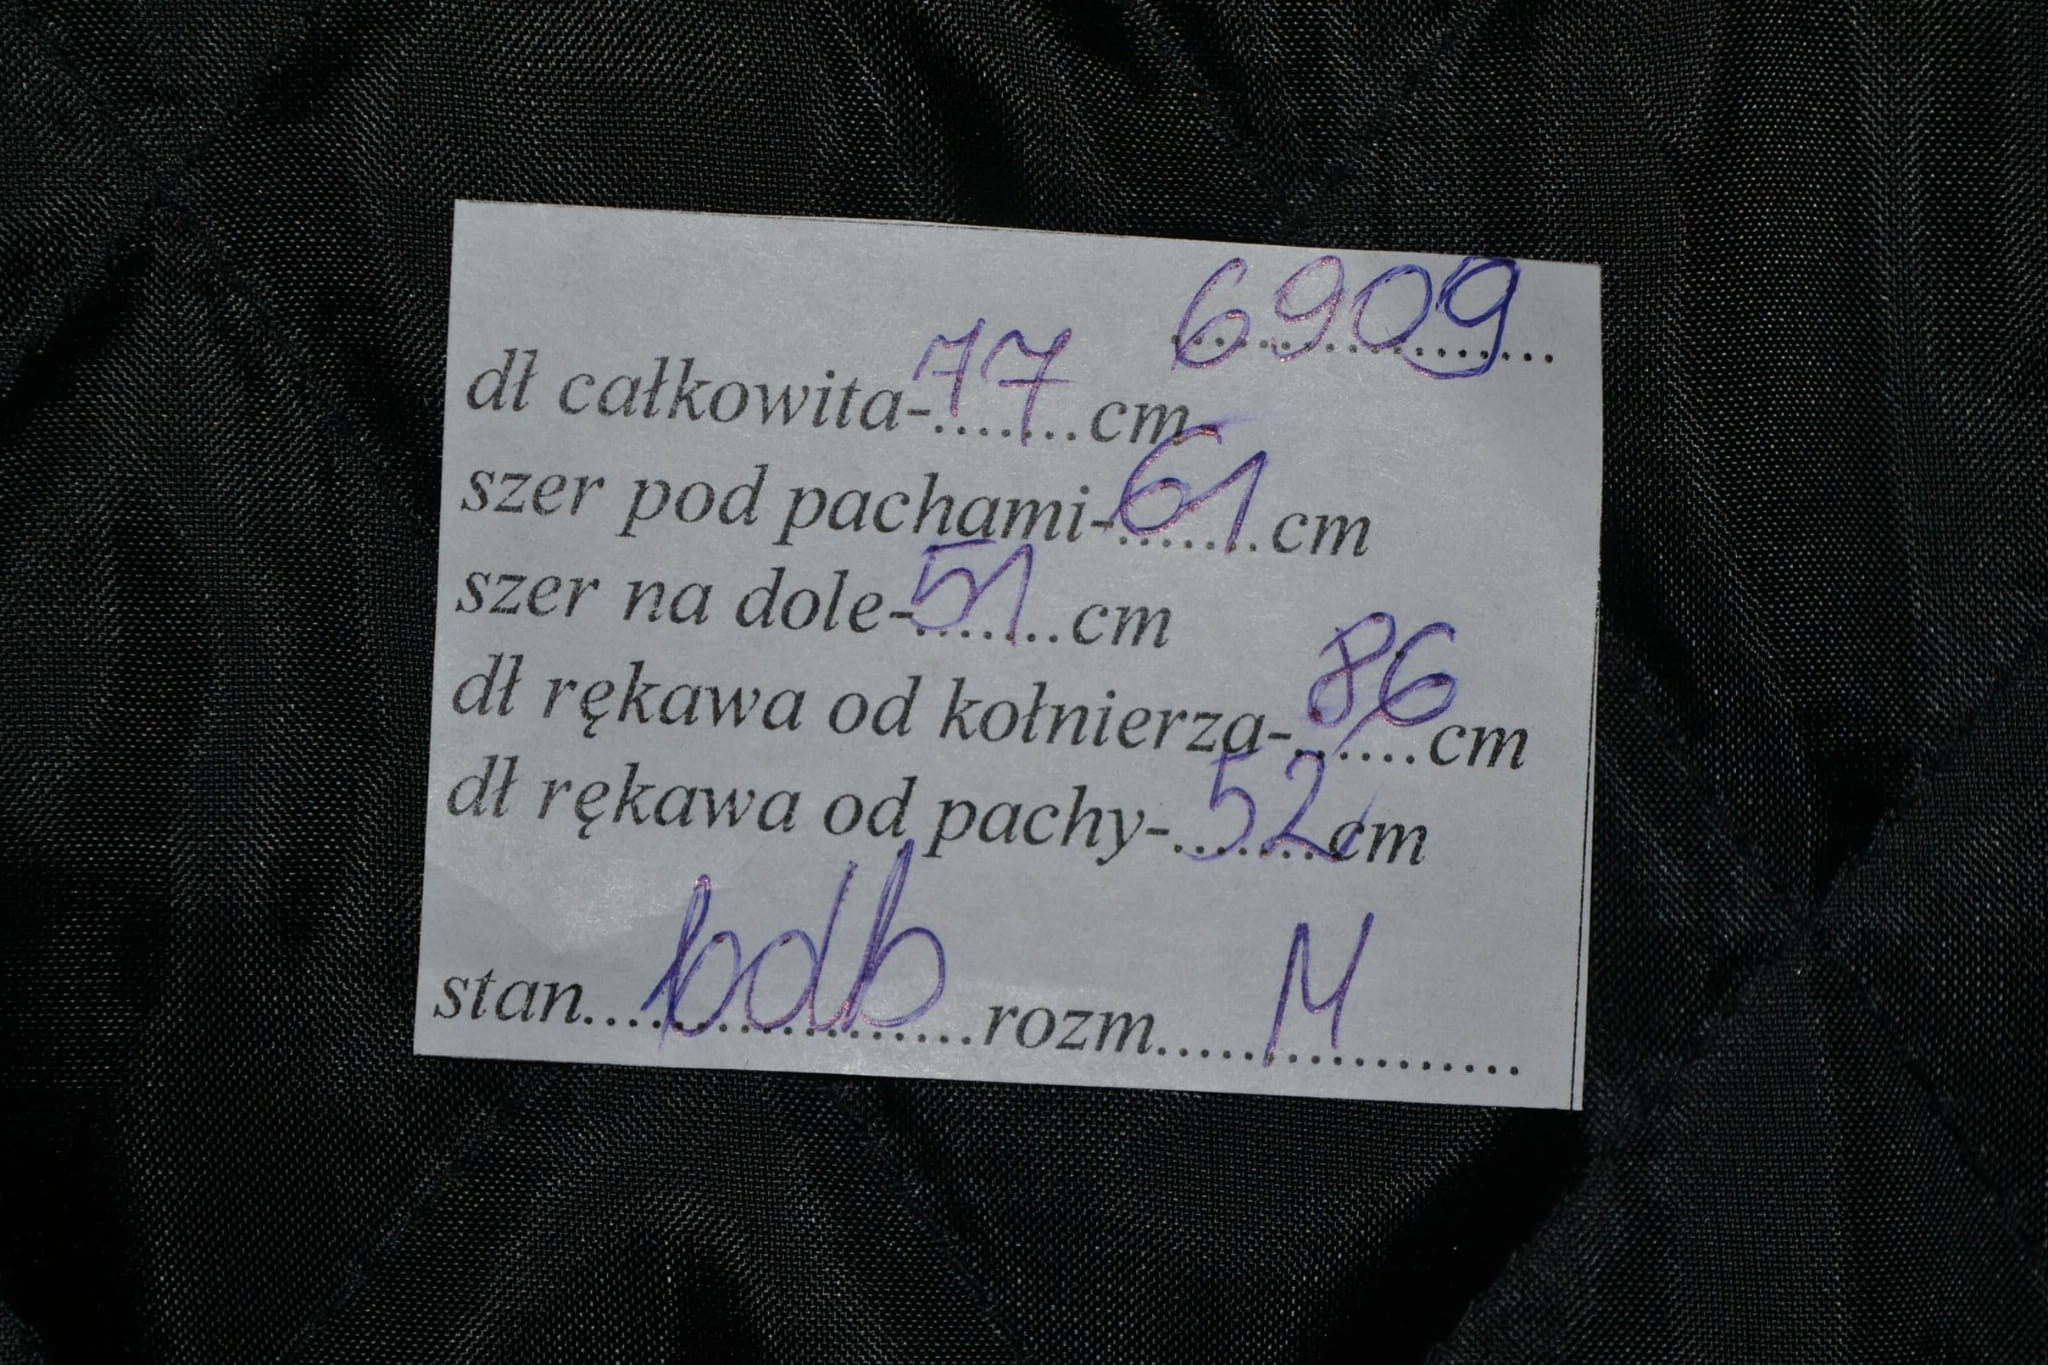 6909
dł całkowita-77.......cm
szer pod pachami-61.......cm
szer na dole-51.......cm
dł rękawa od kołnierza-86......cm
dł rękawa od pachy-52.......cm
stan....bdb..............rozm....M.............